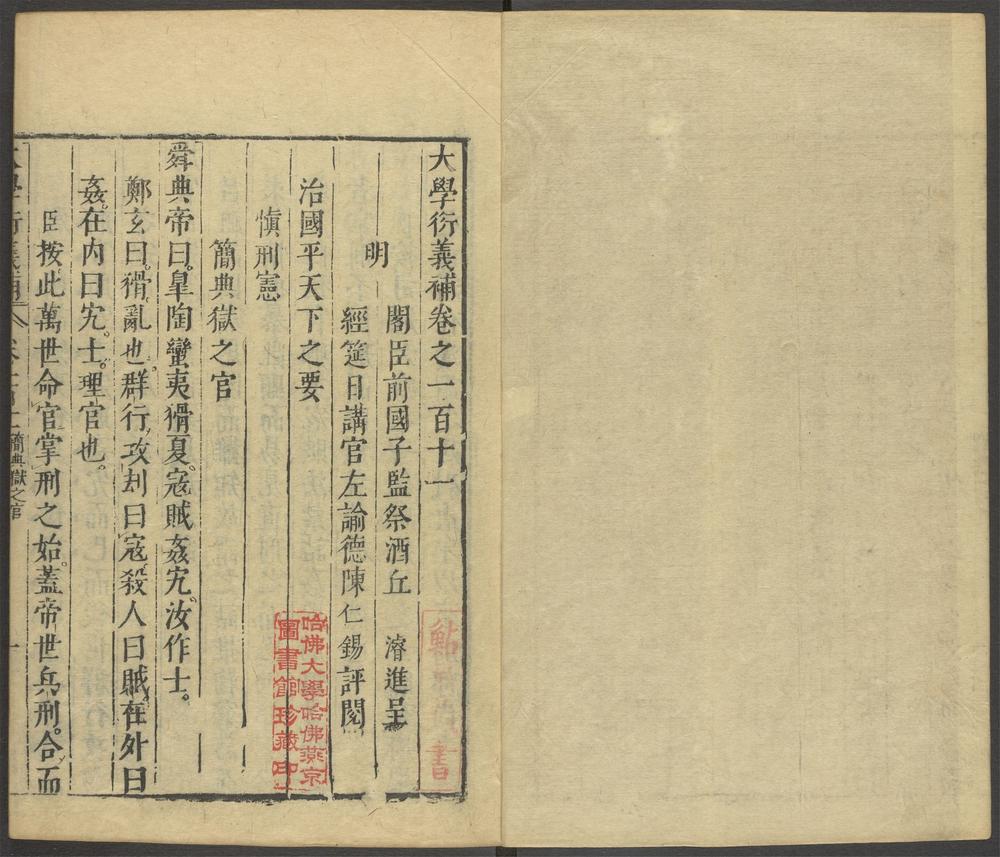 大學衍義補卷之一百十一
明
閣臣前國子監祭酒丘 濬進呈
經筵日講官左諭德陳仁錫評閱
治國平天下之要
慎刑憲
簡典獄之官
舜典帝曰。臯陶蠻夷猾夏。寇賊姦宄。汝作士。
鄭玄曰。猾。亂也。群行攻刦曰寇。殺人曰賊。在外曰
姦。在内曰宄。士。理官也。
臣按。此萬世命官掌刑之始。蓋帝世兵刑。合而
簡典獄之官
一
哈佛大學哈佛燕京
圖書館珍藏印
書